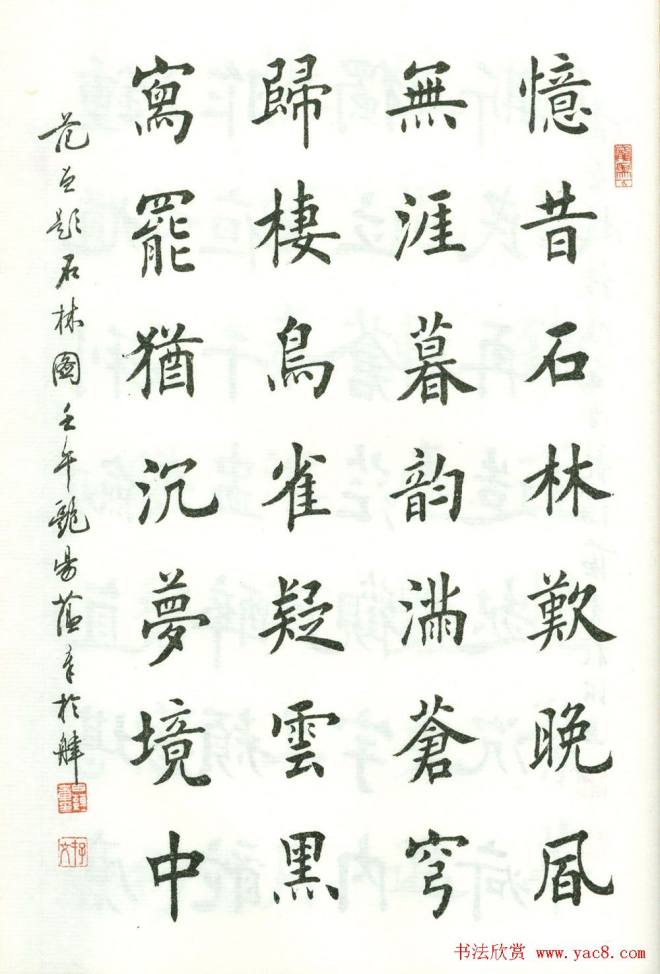 憶昔石林歎晚風
無涯暮韵滿蒼穹
歸棲鳥雀疑雲黑
寫罷猶沉夢境中
范曾題石林圖壬午
書法欣赏 www.yac8.com